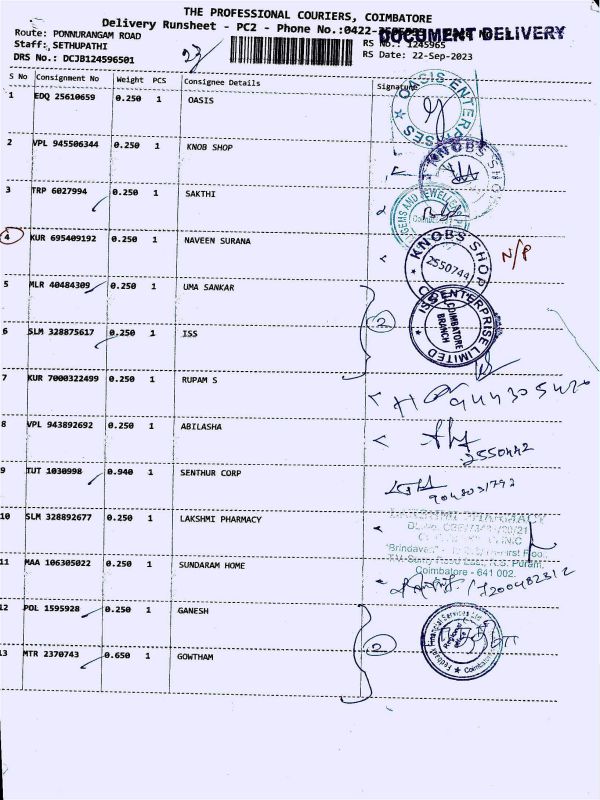 THE PROFESSIONAL COURIERS, COIMBATORE
Delivery Runsheet - PC2 - Phone No.:0422-
DOCUMENT DELIVERY
Route: PONNURANGAM ROAD
RS No.: 1245965
Staff: SETHUPATHI
RS Date: 22-Sep-2023
DRS No.: DCJB124596501
S No Consignment No Weight PCS Consignee Details Signature
1 EDQ 25610659 0.250 1 OASIS
OASIS ENTERPRISES
2 VPL 945506344 0.250 1 KNOB SHOP
KNOBS SHOP
3 TRP 6027994 0.250 1 SAKTHI
GEMS AND JEWELLERY
4 KUR 695409192 0.250 1 NAVEEN SURANA
KNOBS SHOP
2550744
N/P
5 MLR 40484309 0.250 1 UMA SANKAR
2
ISS ENTERPRISE LIMITED
COIMBATORE
BRANCH
6 SLM 328875617 0.250 1 ISS
7 KUR 7000322499 0.250 1 RUPAM S
8 VPL 943892692 0.250 1 ABILASHA
2550442
9 TUT 1030998 0.940 1 SENTHUR CORP
10 SLM 328892677 0.250 1 LAKSHMI PHARMACY
LAKSHMI PHARMACY
Coimbatore - 641 002.
11 MAA 106305022 0.250 1 SUNDARAM HOME
7200482312
12 POL 1595928 0.250 1 GANESH
2
Financial Services Ltd
Coimbatore
13 MTR 2370743 0.650 1 GOWTHAM